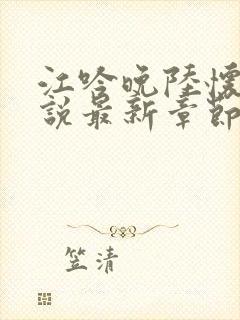 江吟晚陸懷
說最新章節
笠清